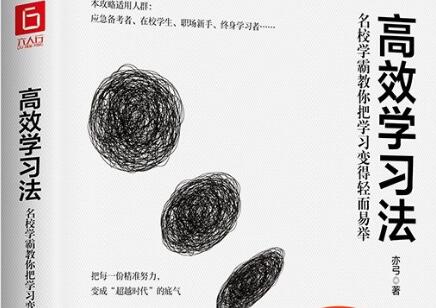 六人行
本攻略适用人群：
应急备考者、在校学生、职场新手、终身学习者……
高效学习法
名校学霸教你把学习变得轻而易举
亦弓◎著
把每一份精准努力，
变成“超越时代”的底气
高效学习法
名校学霸教你把学习变